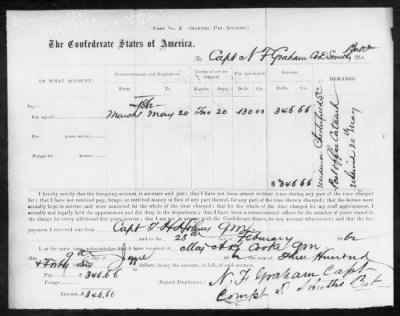 (Form No. 3.—Officers' Pay Account.)
The Confederate States of America,
To Capt N. F. Graham Co D Smiths Dr.
ON WHAT ACCOUNT.
Commencement and Expiration.
Term of service charged.
Pay per month.
Amount.
REMARKS.
From
To
Months.
Days.
Dols.
Cts.
Dols.
Cts.
Pay—
For myself
March May 20 Two 20 130 00 346 66
years service
Forage for horses
$ 346 66
relieved 20 May
I hereby certify that the foregoing account is accurate and just; that I have not been absent without leave during any part of the time charged
for; that I have not received pay, forage, or received money in lieu of any part thereof, for any part of the time therein charged; that the horses were
actually kept in service, and were mustered for the whole of the time charged; that for the whole of the time charged for my staff appointment, I
actually and legally held the appointment and did duty in the department; that I have been a commissioned officer for the number of years stated in
the charge for every additional five years service; that I am not in arrears with the Confederate States, on any account whatsoever; and that the last
payment I received was from Capt T. H. Holmes QM
and to the 28th February 1862
I, at the same time, acknowledge that I have received of Maj A B Cooke QM
this 9th day of June Three Hundred
& Forty Six dollars, being the amount, in full, of said account.
Pay $346.66
Forage
Amount $346.66
(Signed Duplicates.)
N. F. Graham Capt
Comp D Smiths Bat